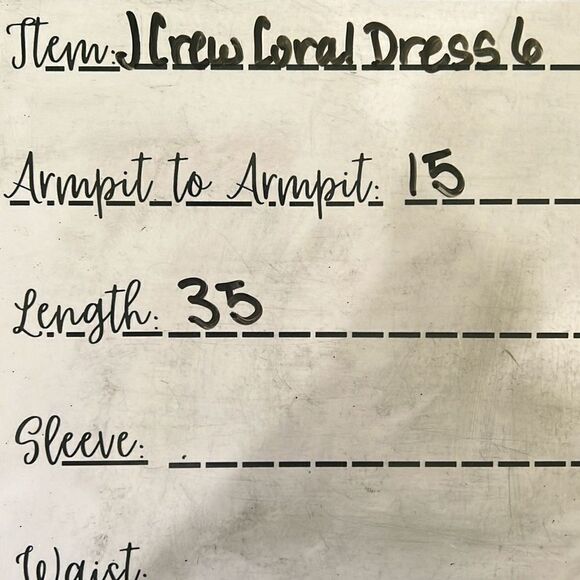 Item: J Crew Coral Dress 6
Armpit to Armpit: 15
Length: 35
Sleeve:
Waist: